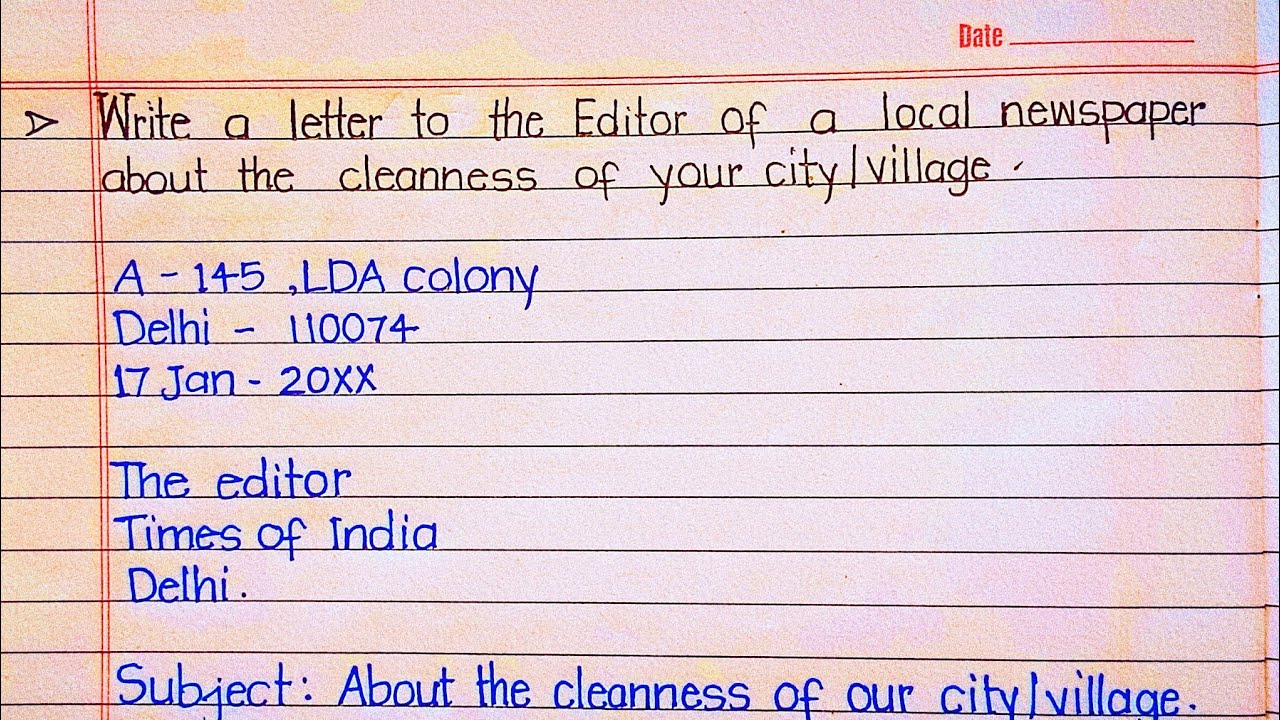 Date
> Write a letter to the Editor of a local newspaper
about the cleanness of your city/village.
A - 145 , LDA colony
Delhi - 110074
17 Jan - 20XX
The editor
Times of India
Delhi.
Subject: About the cleanness of our city/village.